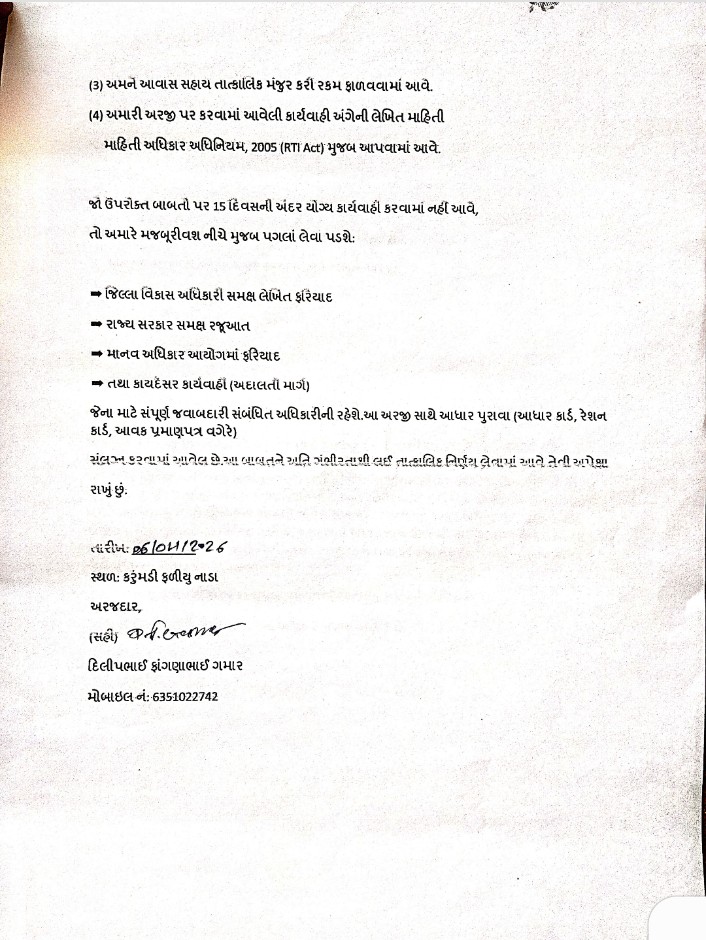 (3) અમને આવાસ સહાય તાત્કાલિક મંજુર કરી રકમ ફાળવવામાં આવે.
(4) અમારી અરજી પર કરવામાં આવેલી કાર્યવાહી અંગેની લેખિત માહિતી
માહિતી અધિકાર અધિનિયમ, 2005 (RTI Act) મુજબ આપવામાં આવે.
જો ઉપરોક્ત બાબતો પર 15 દિવસની અંદર યોગ્ય કાર્યવાહી કરવામાં નહીં આવે,
તો અમારે મજબૂરીવશ નીચે મુજબ પગલાં લેવા પડશે:
➡ જિલ્લા વિકાસ અધિકારી સમક્ષ લેખિત ફરિયાદ
➡ રાજ્ય સરકાર સમક્ષ રજૂઆત
➡ માનવ અધિકાર આયોગમાં ફરિયાદ
➡ તથા કાયદેસર કાર્યવાહી (અદાલતી માર્ગ)
જેના માટે સંપૂર્ણ જવાબદારી સંબંધિત અધિકારીની રહેશે.આ અરજી સાથે આધાર પુરાવા (આધાર કાર્ડ, રેશન
કાર્ડ, આવક પ્રમાણપત્ર વગેરે)
સંલગ્ન કરવામાં આવેલ છે.આ બાબતને અતિ ગંભીરતાથી લઈ તાત્કાલિક નિર્ણય લેવામાં આવે તેવી અપેક્ષા
રાખું છું.
તારીખ:
સ્થળ: કરુંમડી ફળીયુ નાડા
અરજદાર,
(સહી)
દિલીપભાઈ ફાંગણાભાઈ ગમાર
મોબાઇલ નં: 6351022742